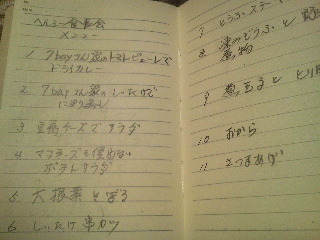 ヘルシー食事会
メニュー
1 7bayさん家のトマトピューレで
ドライカレー
2 7bayさん家のしいたけで
3 豆腐チーズサラダ
4 マヨネーズを使わない
ポテトサラダ
5 大根葉そぼろ
6 しいたけ串カツ
7 とうふステー
8 凍みどうふと
煮物
9 煮玉子ととり
10 おから
11 さつまあげ